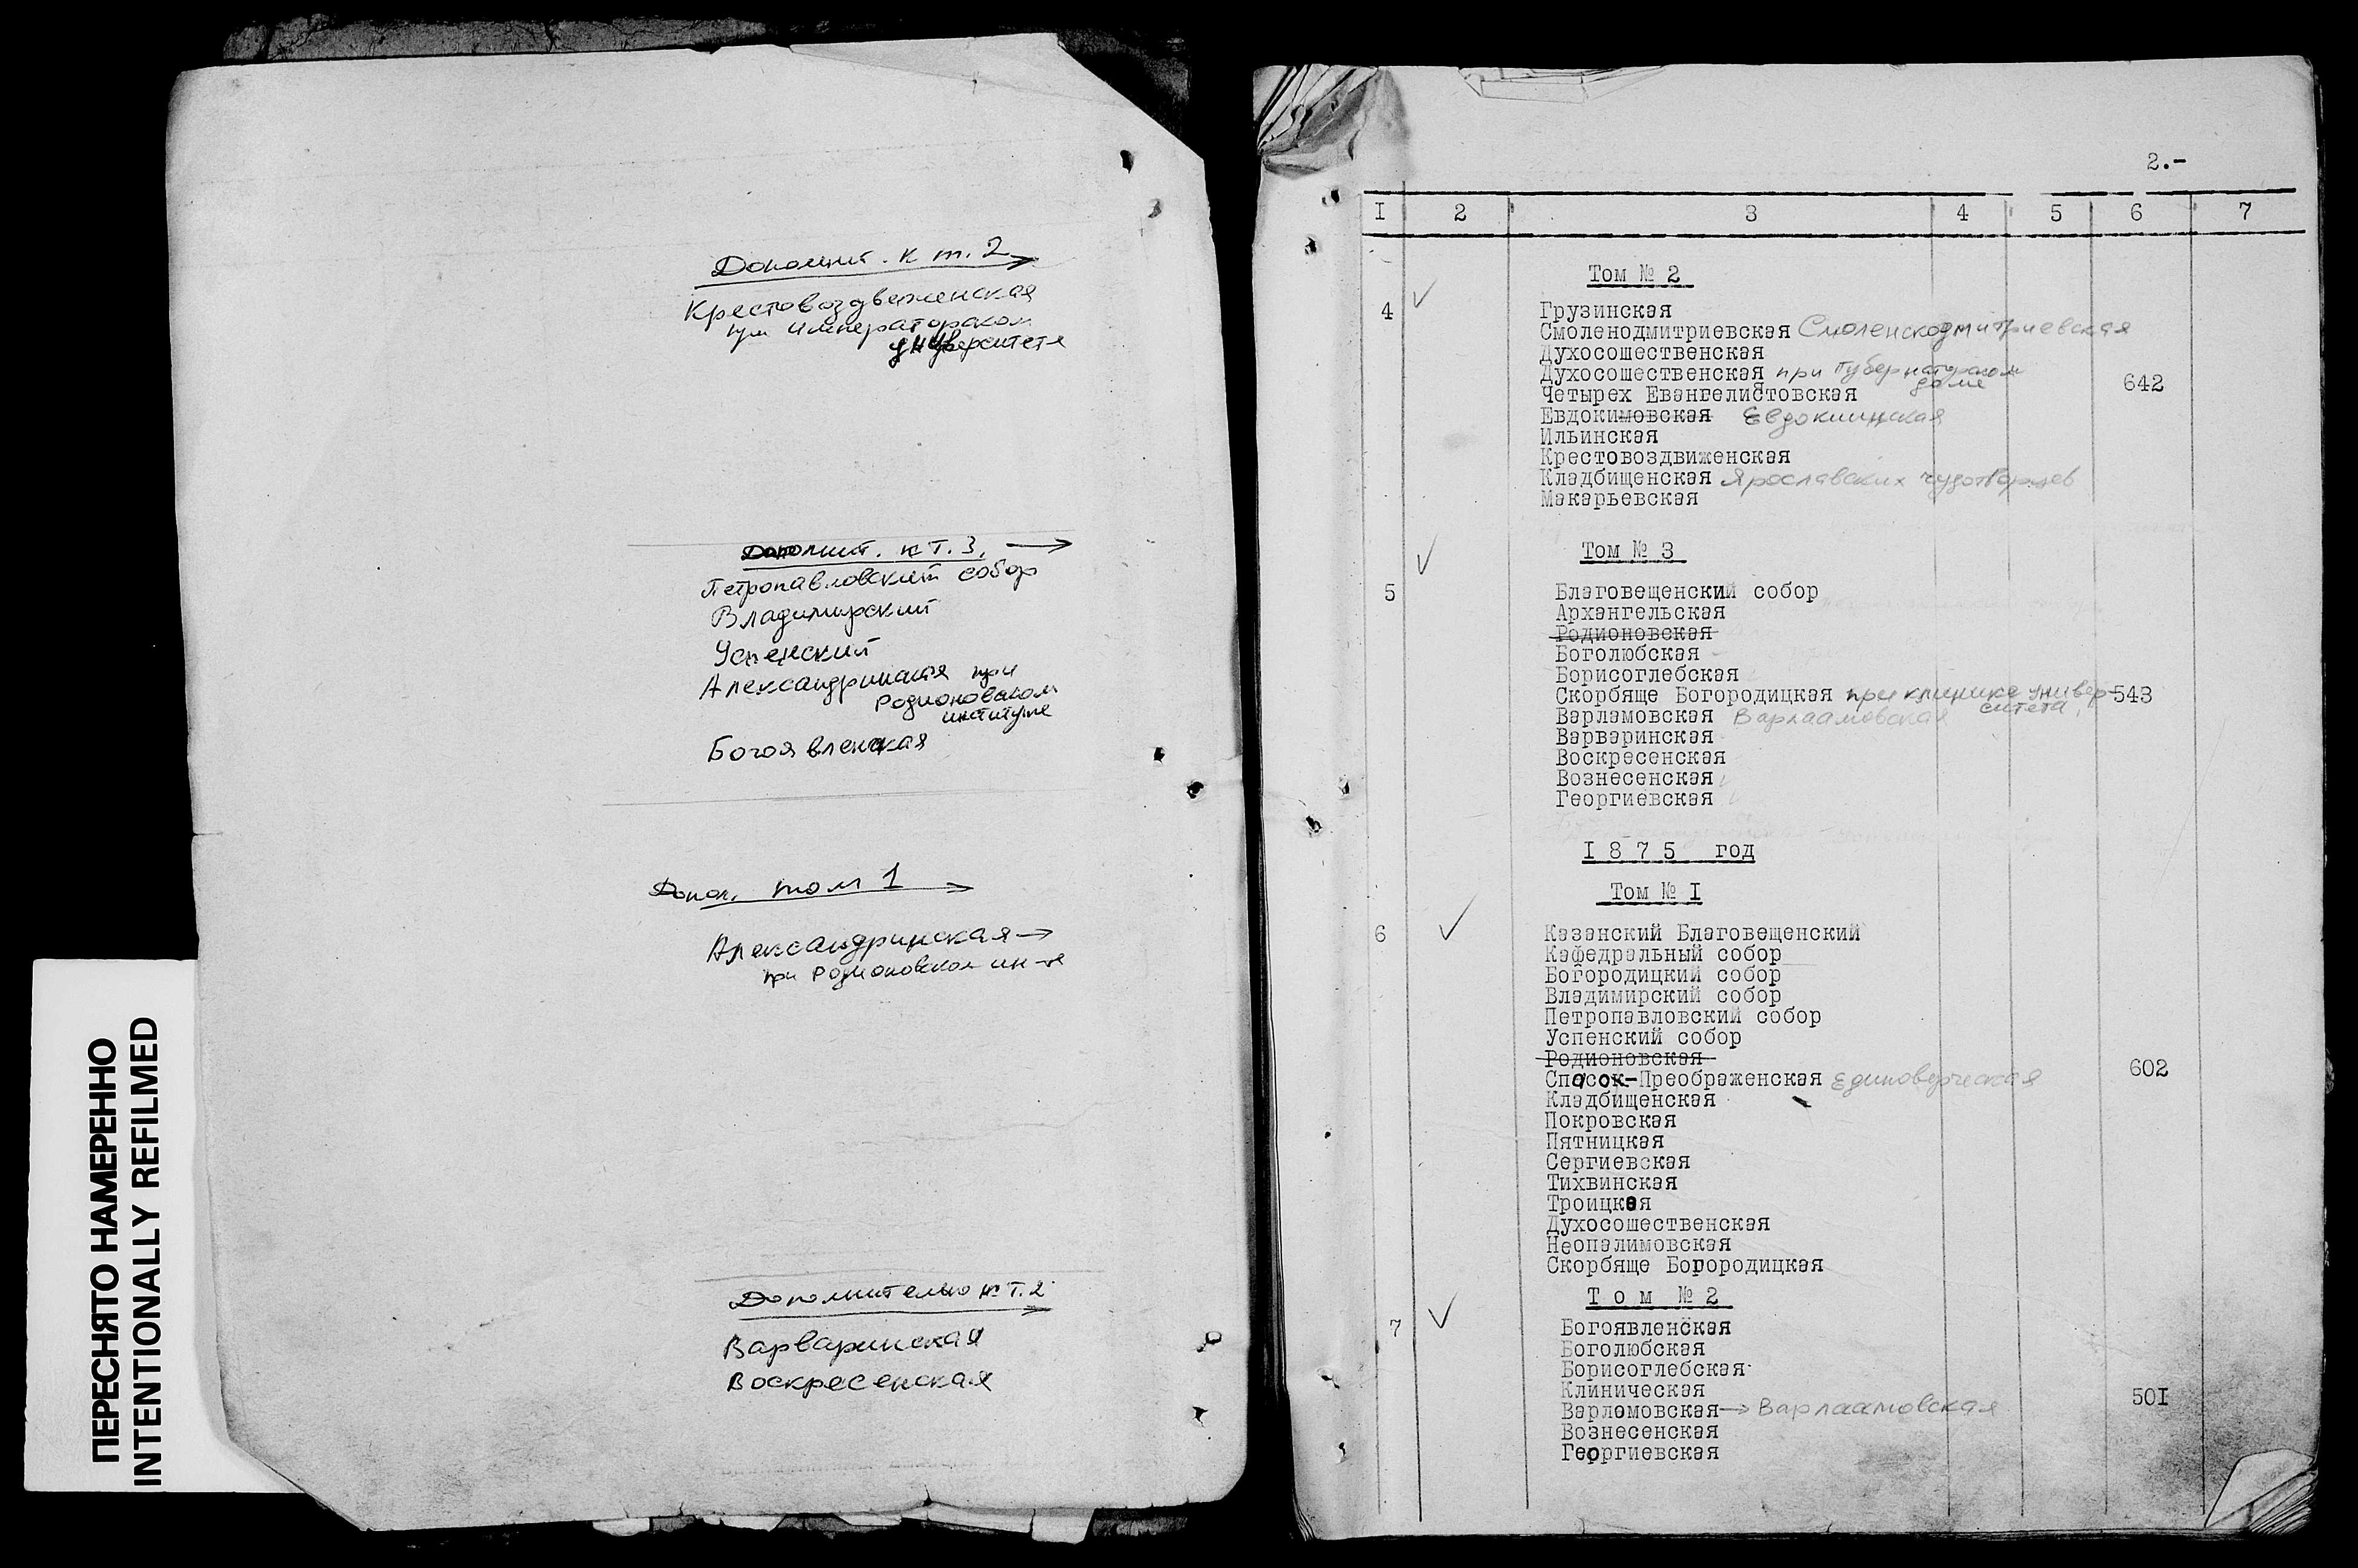 Дополнит. к т. 2
Крестовоздвиженская
при императорском
университете
Дополнит. к Т. 3.
Петропавловский собор
Владимирский
Успенский
Александринская при
Родионовском
институте
Богоявленская
Допол. том 1
Александринская →
при Родионовском ин-те
Дополнительно к Т. 2
Варваринская
Воскресенская
ПЕРЕСНЯТО НАМЕРЕННО
INTENTIONALLY REFILMED
2.-
I 2 3 4 5 6 7
Том № 2
4 Грузинская
Смоленодмитриевская Смоленскодмитриевская
Духосошественская
Духосошественская при губернаторском
доме
Четырех Евангелистовская 642
Евдокимовская Евдокиинская
Ильинская
Крестовоздвиженская
Кладбищенская Ярославских чудотворцев
Макарьевская
Том № 3
5 Благовещенский собор
Архангельская
Родионовская
Боголюбская
Борисоглебская
Скорбяще Богородицкая при клинике универ- 543
ситета
Варламовская Варлаамовская
Варваринская
Воскресенская
Вознесенская
Георгиевская
I 8 7 5 год
Том № I
6 Казанский Благовещенский
Кафедральный собор
Богородицкий собор
Владимирский собор
Петропавловский собор
Успенский собор
Родионовская
Спасок-Преображенская Единоверческая 602
Кладбищенская
Покровская
Пятницкая
Сергиевская
Тихвинская
Троицкая
Духосошественская
Неопалимовская
Скорбяще Богородицкая
Т о м № 2
7 Богоявленская
Боголюбская
Борисоглебская
Клиническая
Варламовская → Варлаамовская 50I
Вознесенская
Георгиевская